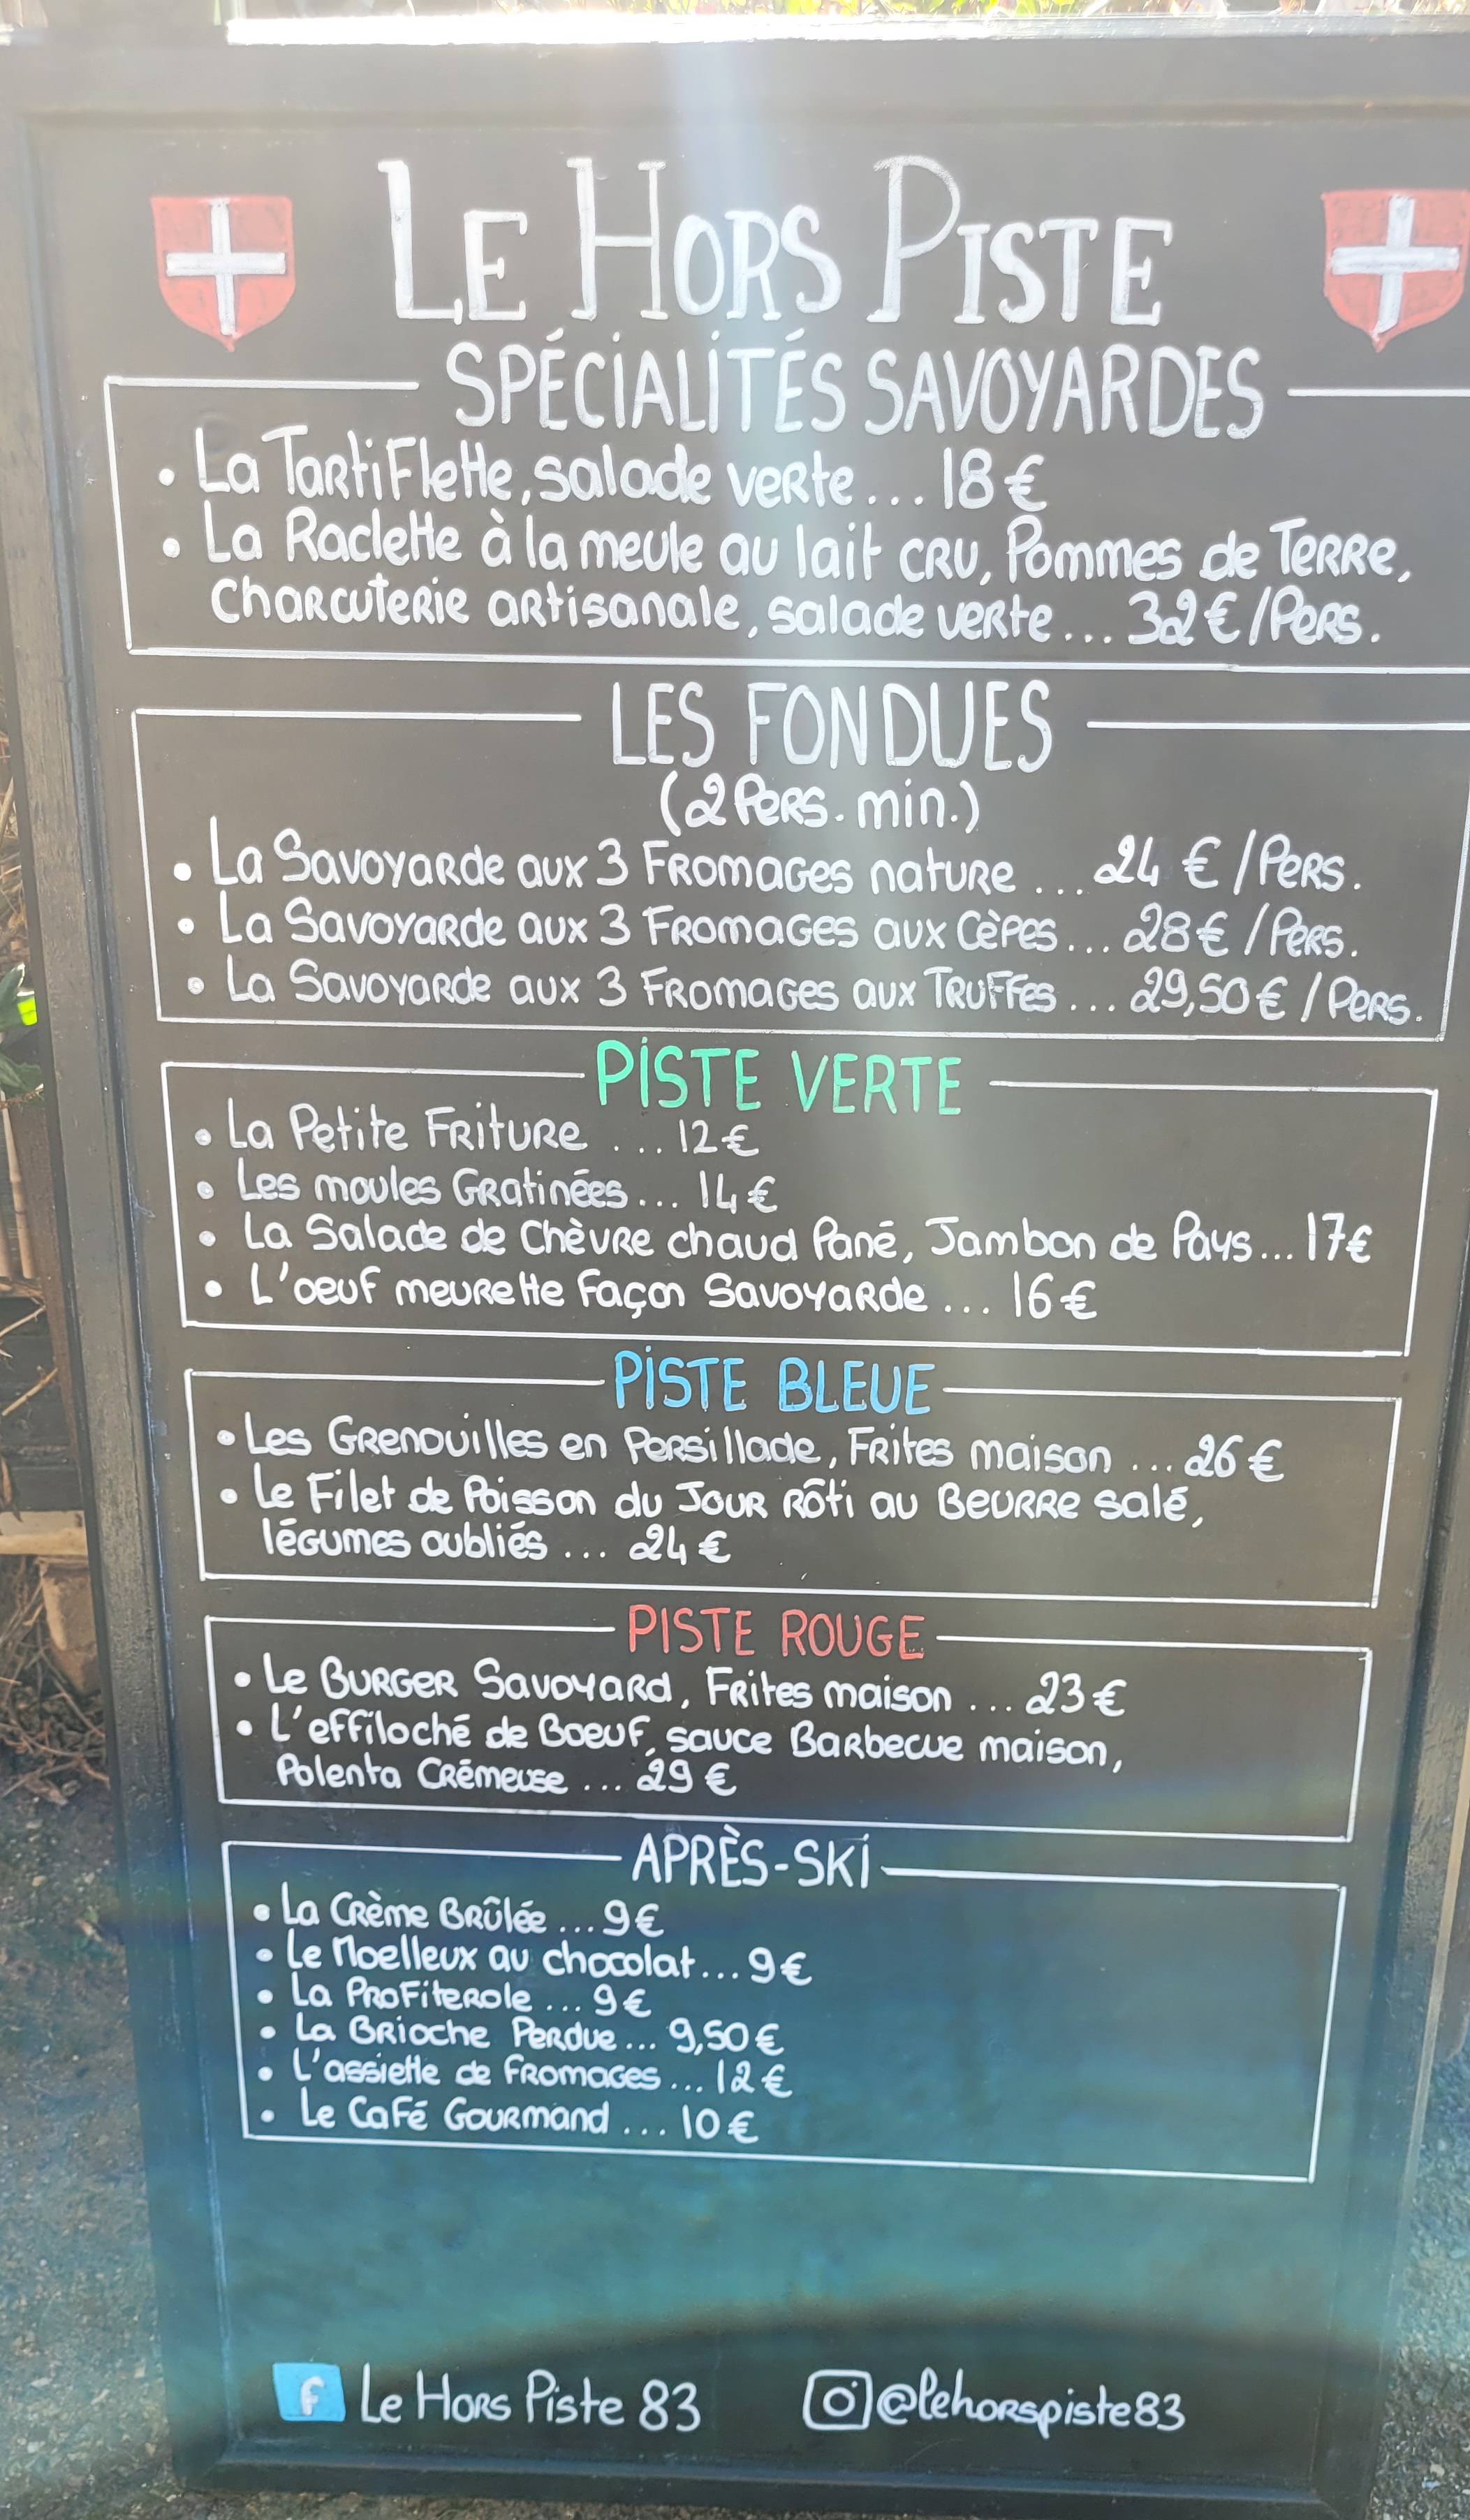 LE HORS PISTE
SPÉCIALITÉS SAVOYARDES
• La Tartiflette, salade verte... 18€
• La Raclette à la meule au lait cru, Pommes de Terre,
Charcuterie artisanale, salade verte... 32€/Pers.
LES FONDUES
(2 Pers. min.)
• La Savoyarde aux 3 Fromages nature ... 24 €/Pers.
• La Savoyarde aux 3 Fromages aux Cèpes... 28€/Pers.
• La Savoyarde aux 3 Fromages aux Truffes... 29,50€/Pers.
PISTE VERTE
• La Petite Friture ... 12€
• Les moules Gratinées... 14€
• La Salade de Chèvre chaud Pané, Jambon de Pays... 17€
• L'oeuf meurette Façon Savoyarde ... 16€
PISTE BLEUE
• Les Grenouilles en Persillade, Frites maison ... 26€
• Le Filet de Poisson du Jour Rôti au Beurre salé,
légumes oubliés ... 24€
PISTE ROUGE
• Le Burger Savoyard, Frites maison ... 23€
• L'effiloché de Boeuf, sauce Barbecue maison,
Polenta Crémeuse ... 29€
APRÈS-SKI
• La Crème Brûlée ... 9€
• Le Moelleux au chocolat... 9€
• La Profiterole ... 9€
• La Brioche Perdue... 9,50€
• L'assiette de Fromages... 12€
• Le Café Gourmand ... 10€
f Le Hors Piste 83 @lehorspiste83